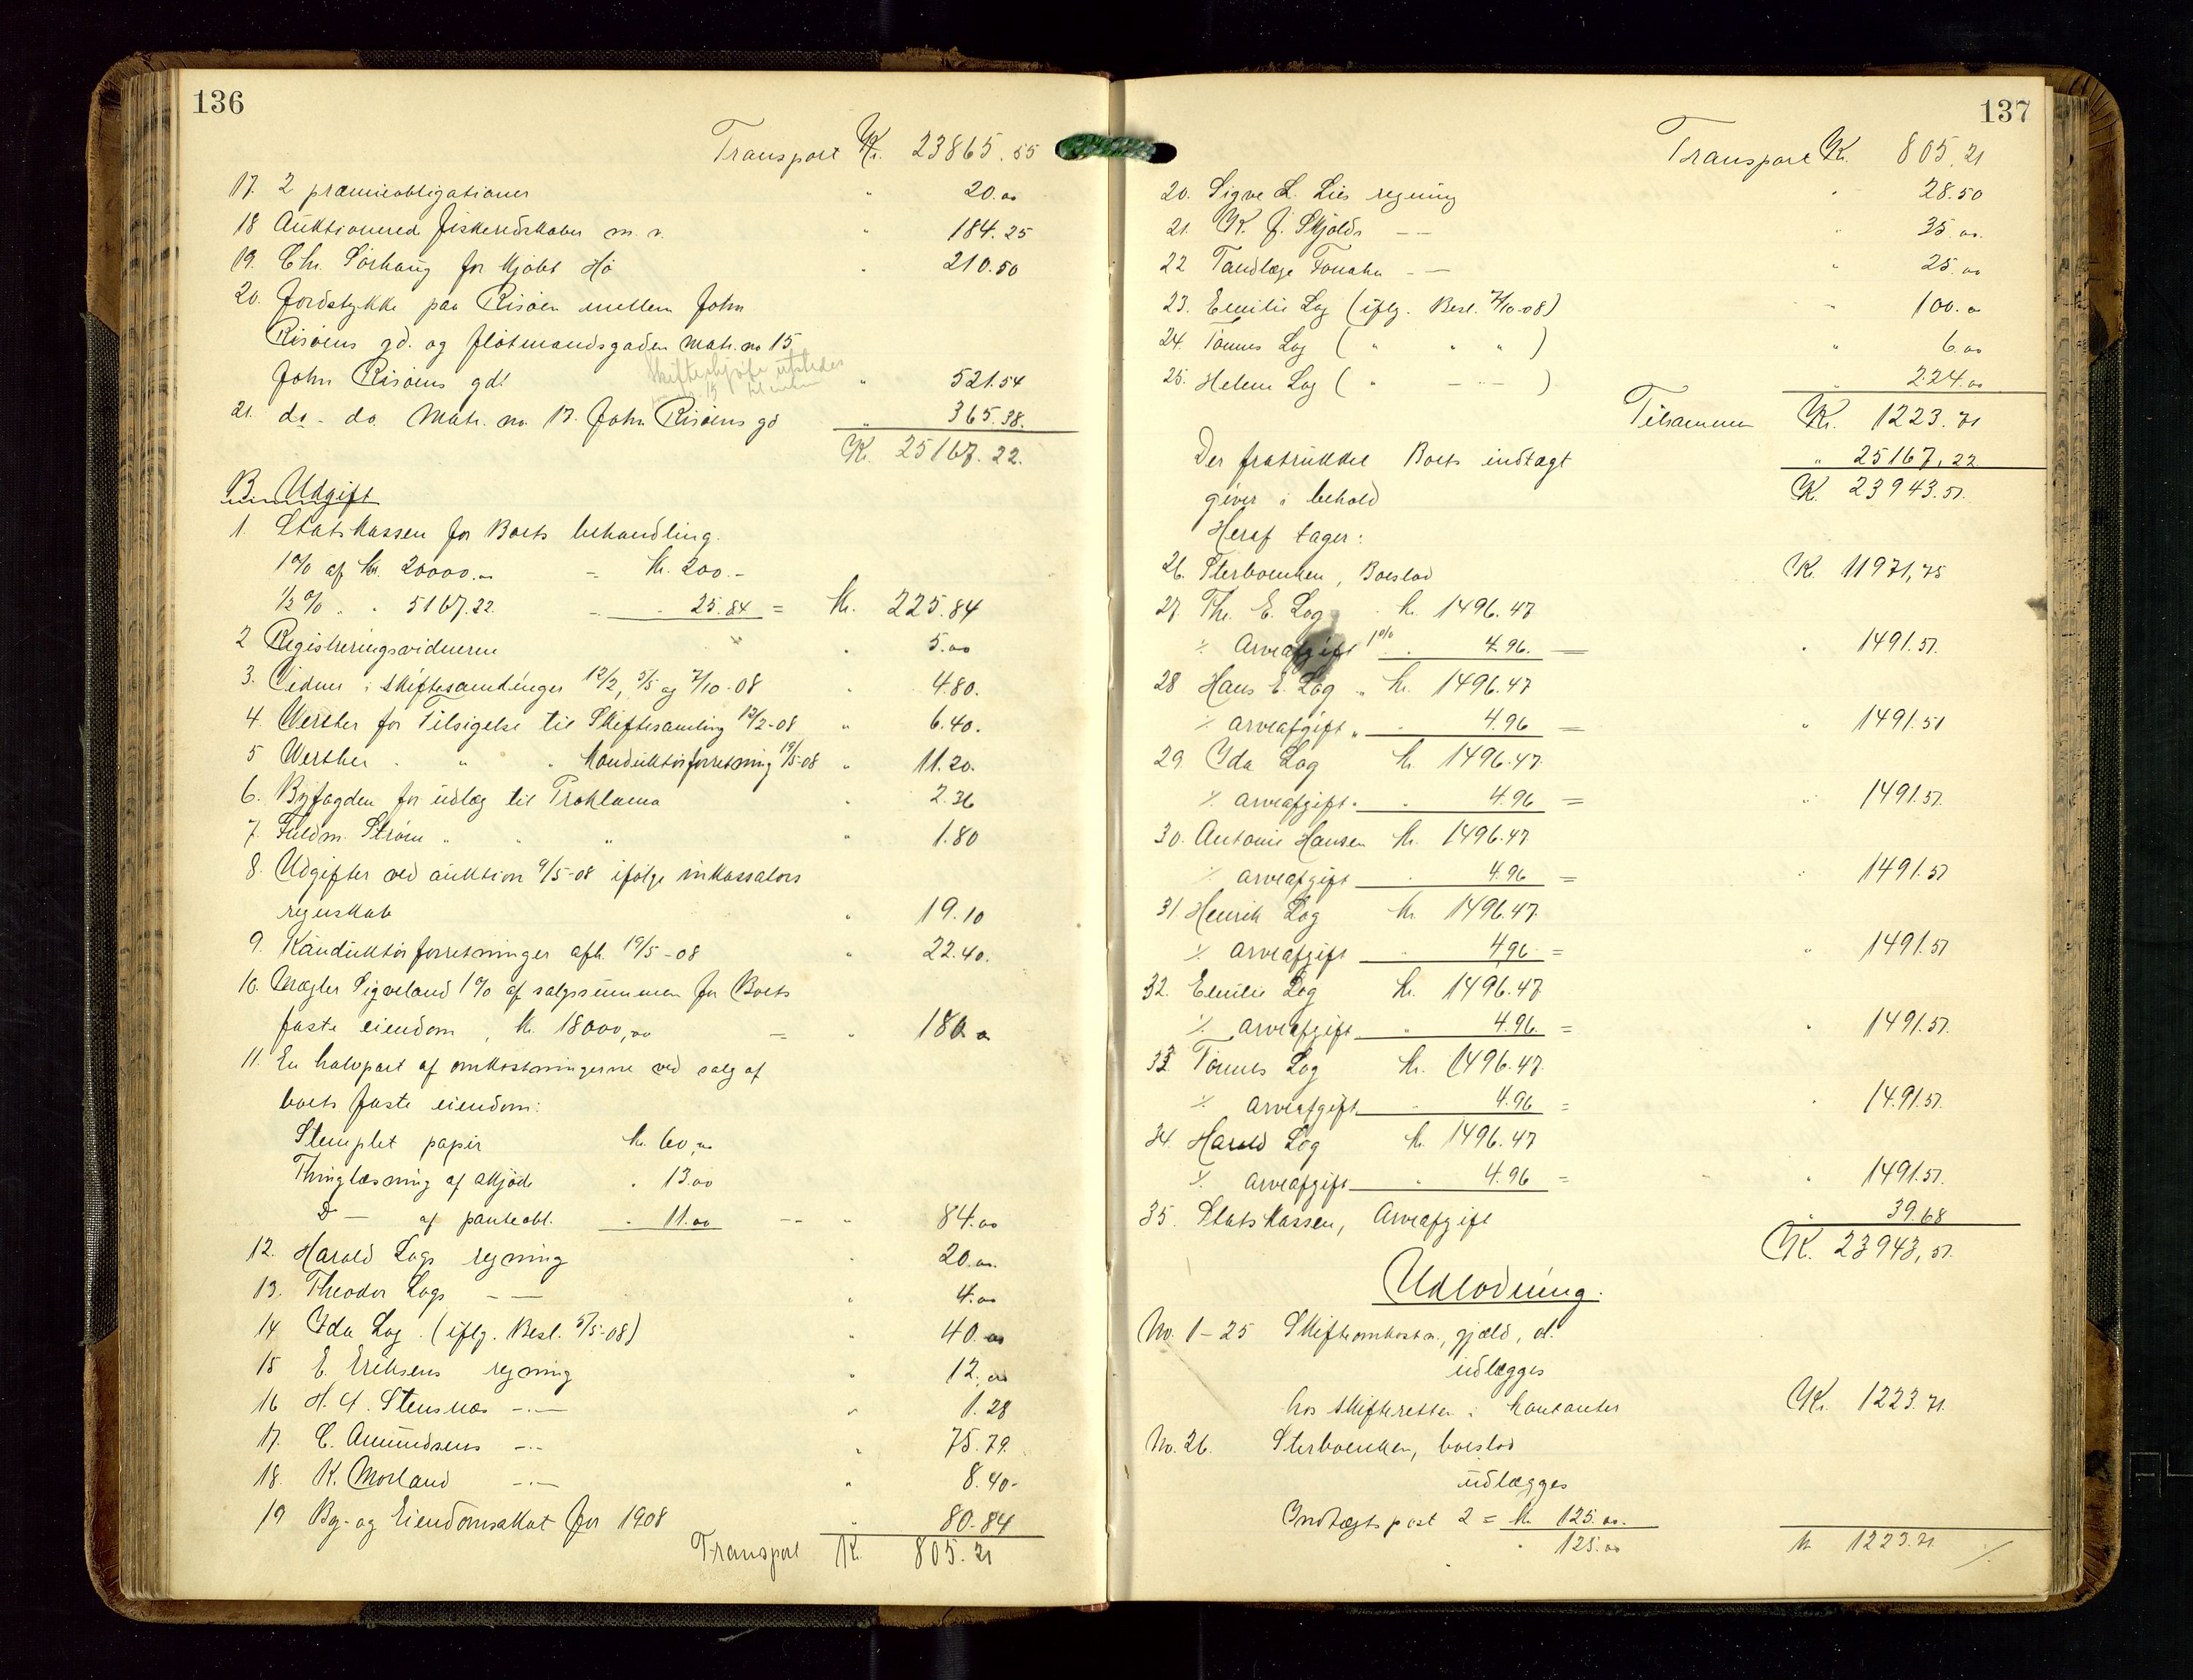 136
Transport Kr. 23865.55
17. 2 præmieobligationer " 20.00
18 Auktionered fiskeredskaber m. v. " 184.25
19. Chr. Sörhaug for kjøbt Hø " 210.50
20. Jordstykke paa Risøen mellem John
Risøens gd. og Flötmandsgaden Matr. no 15
John Risøens gd. " 521.54
Skifteskjøte utstedes
15
21. do - do. Matr. no. 17. John Risøens gd " 365.38.
Kr. 25167.22.
B. Udgift
1. Statskassen for Boets behandling.
1% af Kr. 20000.00 = Kr. 200.-
1/2% " " 5167.22. - " 25.84 = Kr. 225.84
2 Registreringsvidnerne " " 5.00
3. Vidner i skiftesamlinger 12/2, 5/5 og 7/10-08 " 4.80.
4. Werther for Tilsigelse til Skiftesamling 12/2-08 " 6.40.
5 Werther " " " Konduktörforretning 19/5-08 " 11.20.
6. Byfogden for udlæg til Proklama " 2.36
7. Fuldm. Strøm " " " " 1.80
8. Udgifter ved auktion 9/5-08 ifølge inkassators
regnskab " 19.10
9. Konduktörforretninger afh. 19/5-08 " 22.40.
10. Mægler Sigveland 1% af salgssummen for Boets
faste eiendom, Kr. 18000,00 = " 180.00
11. En halvpart af omkostningerne ved salg af
boets faste eiendom:
Stemplet papir Kr. 60,00
Thinglæsning af skjøde " 13.00
D — af panteobl. " 11.00 -- " 84.00
12. Harald Logs regning " 20.00
13. Theodor Logs — — " 4.00
14 Ida Log. (iflg. Besl. 5/5-08) " 40.00
15 E. Eriksens regning " 12.00
16 H. A. Stensnæs -.- " 1.28
17. C. Amundsens -.- " 75.79.
18. K. Morland -.- " 8.40-
19 By- og Eiendomsskat for 1908 " 80.84
Transport K. 805.21
137
Transport Kr. 805.21
20. Sigve L. Lies regning " 28.50
21. K. J. Skjolds — — " 35.00.
22 Tandlæge — — " 25.00
23. Emilie Log (iflg. Besl. 7/10-08) " 100.00
24. Tönnes Log ( " " " ) " 6.00
25. Helene Log ( " - " - ) " 224.00
Tilsammen Kr. 1223.71
Der fratrukket Boets indtægt " 25167,22
giver i behold K. 23943.51.
Heraf tager:
26. Sterboenken, Boeslod Kr. 11971,75
27. Th. E. Log. . Kr. 1496.47
% Arveafgift 1% " 4.96. = " 1491.51.
28 Hans E. Log " Kr. 1496.47
% arveafgift " " 4.96 = " 1491.51
29. Ida Log Kr. 1496.47.
% arveafgift. " 4.96 = " 1491.51.
30. Antonie Hansen Kr. 1496.47
% arveafgift " 4.96 = " 1491.51
31. Henrik Log Kr. 1496.47.
% arveafgift " 4.96 = " 1491.51
32. Emilie Log Kr. 1496.47
% arveafgift " 4.96 = " 1491.51.
33. Tönnes Log Kr. 1496.47.
% arveafgift " 4.96 = " 1491.51.
34. Harald Log Kr. 1496.47
% arveafgift " 4.96 = " 1491.51.
35. Statskassen, Arveafgift " 39.68
Kr. 23943,51.
Udlodning.
No. 1-25 Skifteomkostn., gjæld, ol.
udlægges
hos skifteretten i kontanter Kr. 1223.71.
No. 26. Sterboenken, boeslod
udlægges
Indtægts post 2 = Kr. 125.00.
" 125.00 Kr 1223.71.